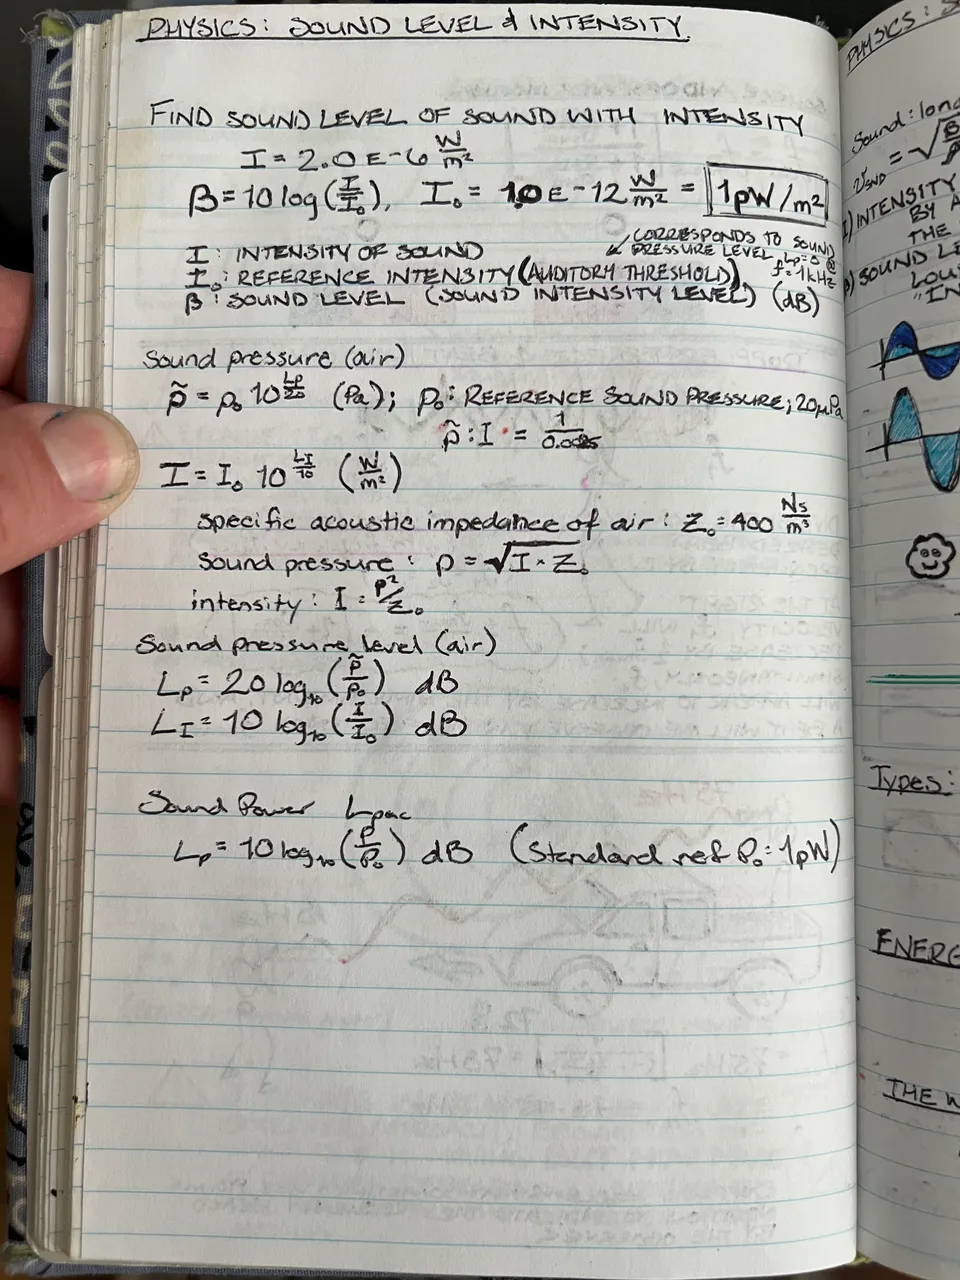 PHYSICS: SOUND LEVEL & INTENSITY
FIND SOUND LEVEL OF SOUND WITH INTENSITY
I = 2.0 E-6 W/m²
β = 10 log(I/I₀), I₀ = 1.0 E-12 W/m² = 1pW/m²
↙ CORRESPONDS TO SOUND
PRESSURE LEVEL, Lp=0 @
f=1kHz
I: INTENSITY OF SOUND
I₀: REFERENCE INTENSITY (AUDITORY THRESHOLD)
β: SOUND LEVEL (SOUND INTENSITY LEVEL) (dB)
Sound pressure (air)
p̃ = p₀ 10^(Lp/20) (Pa); p₀: REFERENCE SOUND PRESSURE; 20μPa
p̃ : I = 1/0.0025
I = I₀ 10^(LI/10) (W/m²)
specific acoustic impedance of air: Z₀ = 400 Ns/m³
sound pressure: p = √(I × Z₀)
intensity: I = p²/Z₀
Sound pressure level (air)
Lp = 20 log₁₀(p̃/p₀) dB
LI = 10 log₁₀(I/I₀) dB
Sound Power Lpac
Lp = 10 log₁₀(P/P₀) dB (Standard ref P₀ = 1pW)
PHYSICS:
Sound: long
VSND = √B/ρ
INTENSITY
BY A
THE
β) SOUND LE
LOU
"IN
Types:
ENERG
THE W